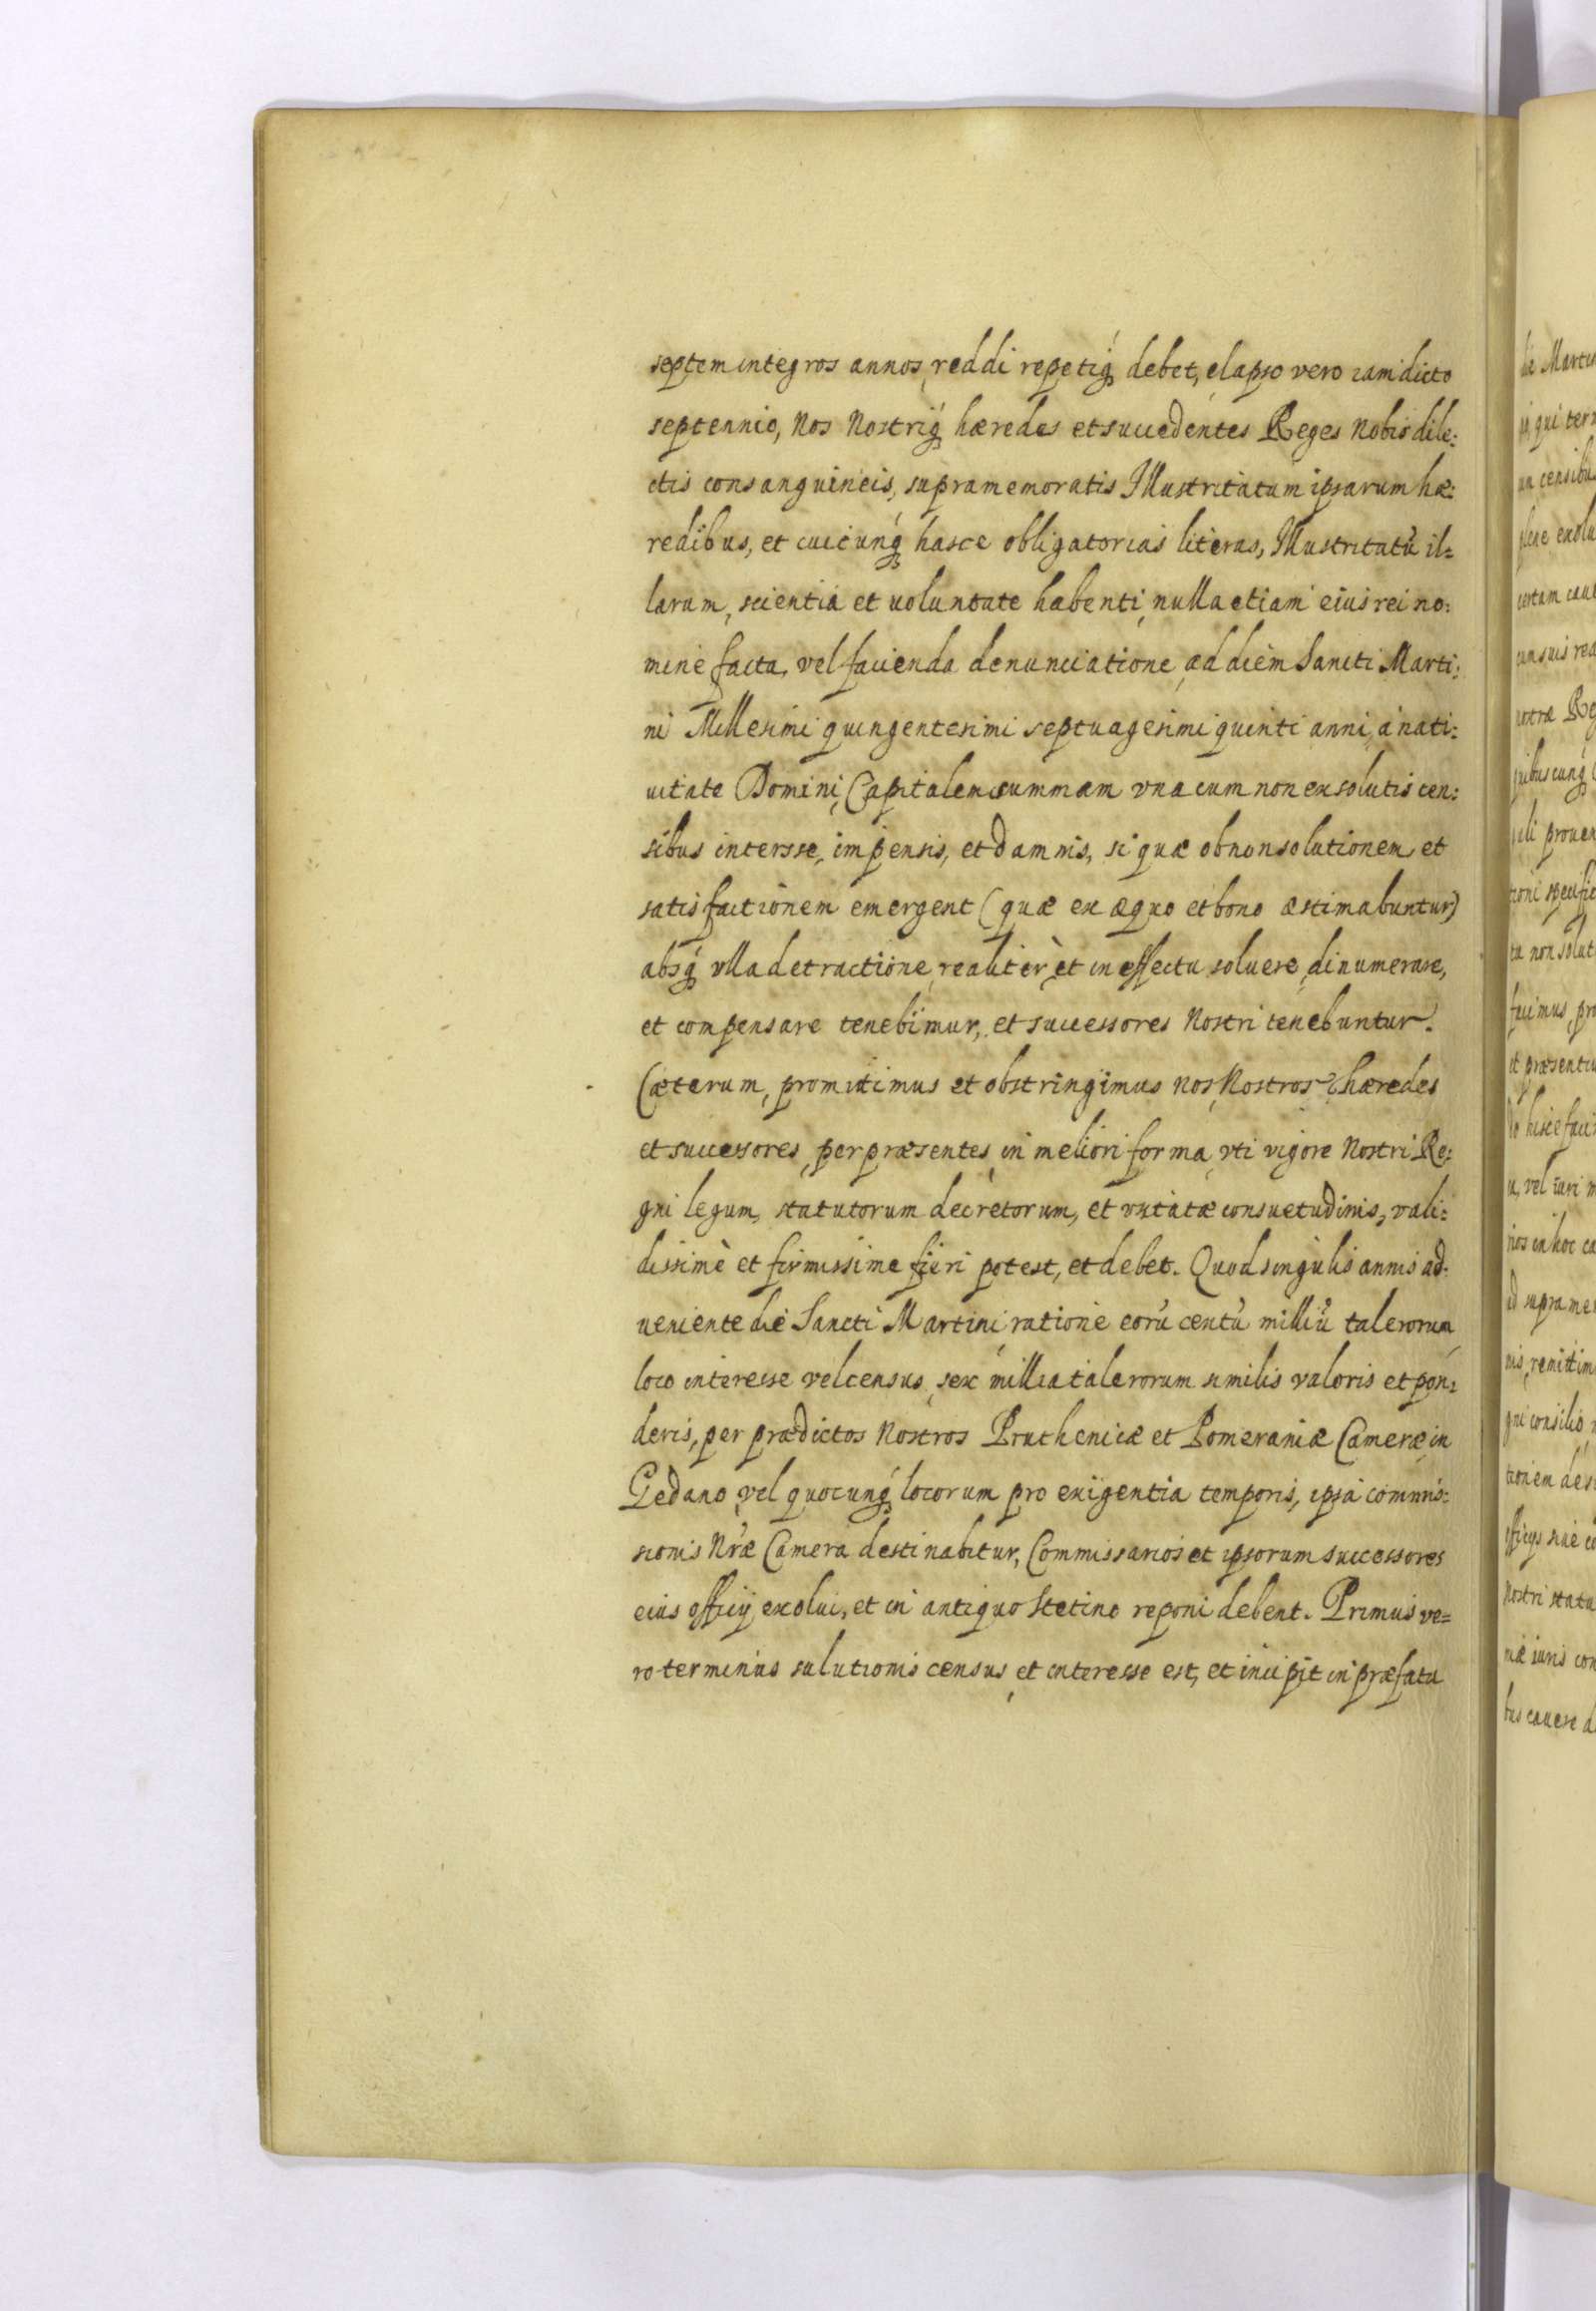 septem integros annos, reddi repetiq́ꝫ debet, elapso vero iam dicto
septennio, Nos Nostriq́ꝫ hæredes et succedentes Reges Nobis dile:
ctis consanguineis, supramemoratis Illustritatum ipsarum hæ:
redibus, et cuicunq́ꝫ hasce obligatorias literas, Illustritatũ il=
larum, scientia et uoluntate habenti, nulla etiam eius rei no:
mine facta, vel facienda denunciatione, ad diem Sancti Marti:
ni Millesimi quingentesimi septuagesimi quinti anni, à nati:
uitate Domini, Capitalem summam vna cum non exsolutis cen:
sibus intersse, impensis, et damnis, si quæ ob non solutionem et
satisfactionem emergent (quæ ex æquo et bono æstimabuntur)
absq́ꝫ vlla detractione, realiter, et in effectu soluere, dinumerare,
et compensare tenebimur, et successores Nostri tenebuntur.
Cæterum, promittimus et obstringimus Nos, Nostros hæredes
et successores, per præsentes, in meliori forma, vti vigore Nostri Re:
gni legum, statutorum decretorum, et vsitatæ consuetudinis, vali:
dissimè et firmissime fieri potest, et debet. Quod singulis annis ad:
ueniente die Sancti Martini, ratione eorũ centũ milliũ talerorum,
loco interesse vel census, sex millia talerorum similis valoris et pon:
deris, per prædictos Nostros Pruthenicæ et Pomeraniæ Cameræ in
Gedano, vel quocunq́ꝫ locorum pro exigentia temporis, ipsa commis:
sionis Nr̃æ Camera destinabitur, Commissarios et ipsorum successores
eius officij exolui, et in antiquo Stetino reponi debent. Primus ve=
ro terminus salutionis census, et interesse est, et incipit in præfata